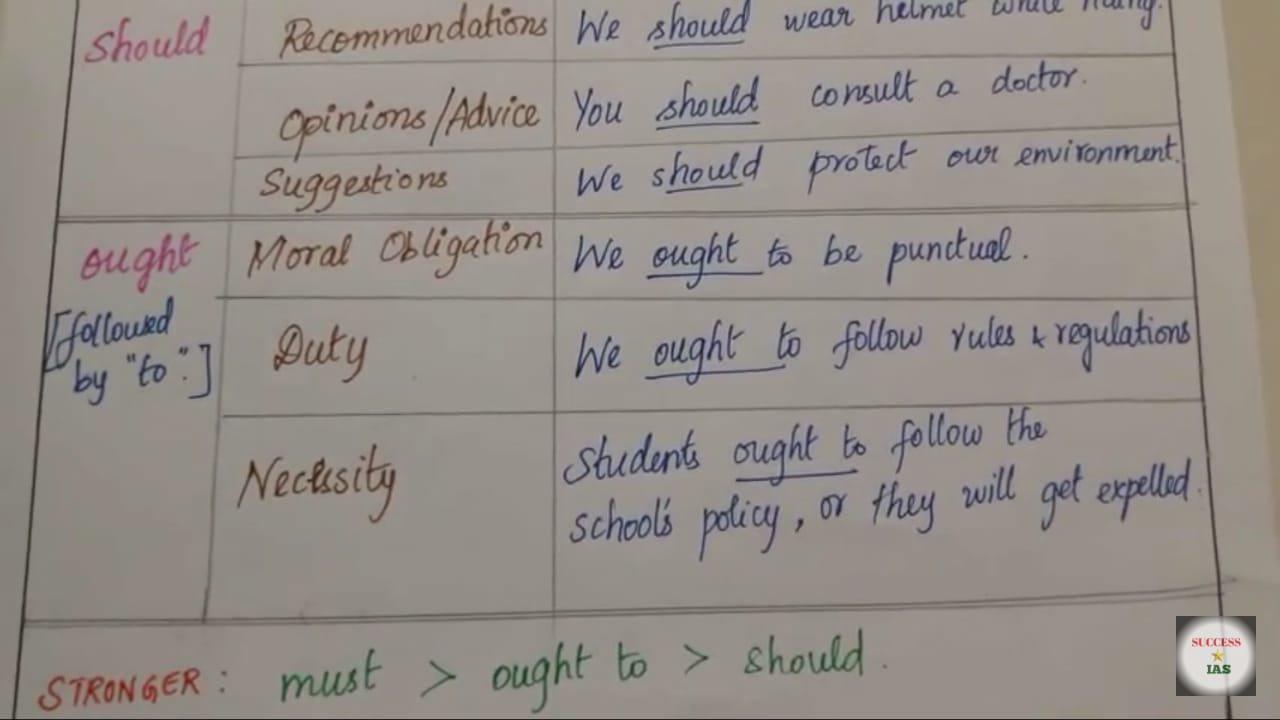 should Recommendations We should wear helmet while riding.
Opinions/Advice You should consult a doctor.
Suggestions We should protect our environment.
ought Moral Obligation We ought to be punctual.
[followed by "to".] Duty We ought to follow rules & regulations
Necessity Students ought to follow the
school's policy, or they will get expelled.
STRONGER: must > ought to > should.
SUCCESS
IAS